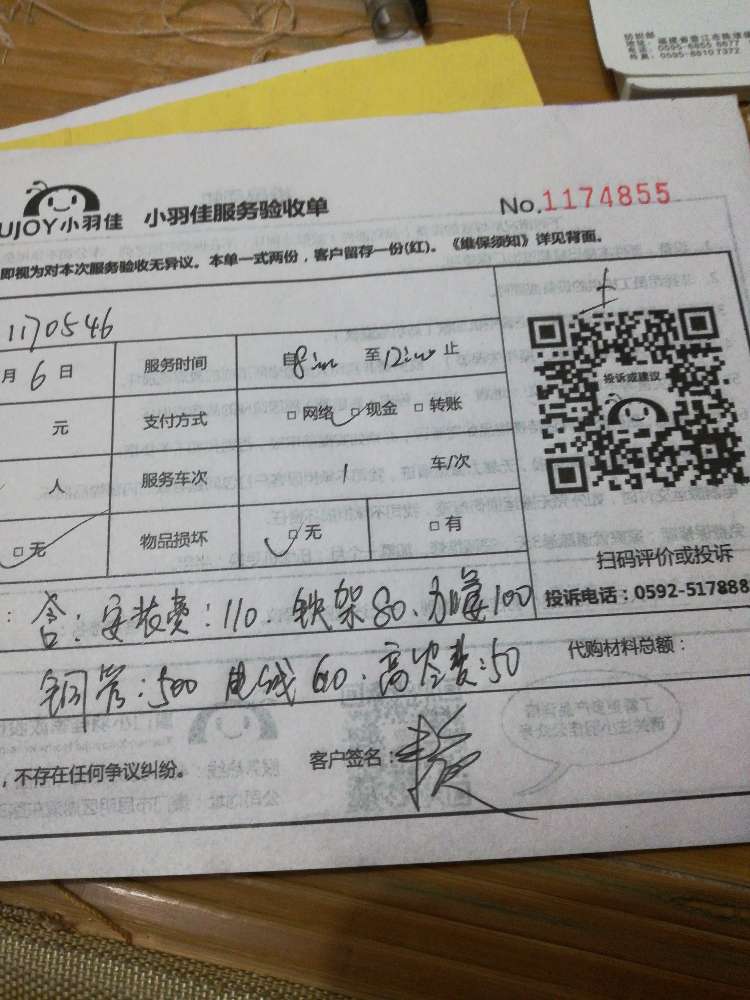 地址：福建省晋江市陈埭镇
电话：0595-6855 6677
传真：0595-6810 7372
UJOY小羽佳 小羽佳服务验收单 No.1174855
即视为对本次服务验收无异议。本单一式两份，客户留存一份(红)。《维保须知》详见背面。
1170546
月 6 日 服务时间 自 8:00 至 12:00 止
元 支付方式 □ 网络 □ 现金 □ 转账
投诉或建议
人 服务车次 1 车/次
□ 无 物品损坏 □ 无 □ 有
扫码评价或投诉
投诉电话：0592-517888
：含：安装费：110. 铁架80. 加氟100
铜管：500 电线60. 高空费：50 代购材料总额：
，不存在任何争议纠纷。 客户签名：